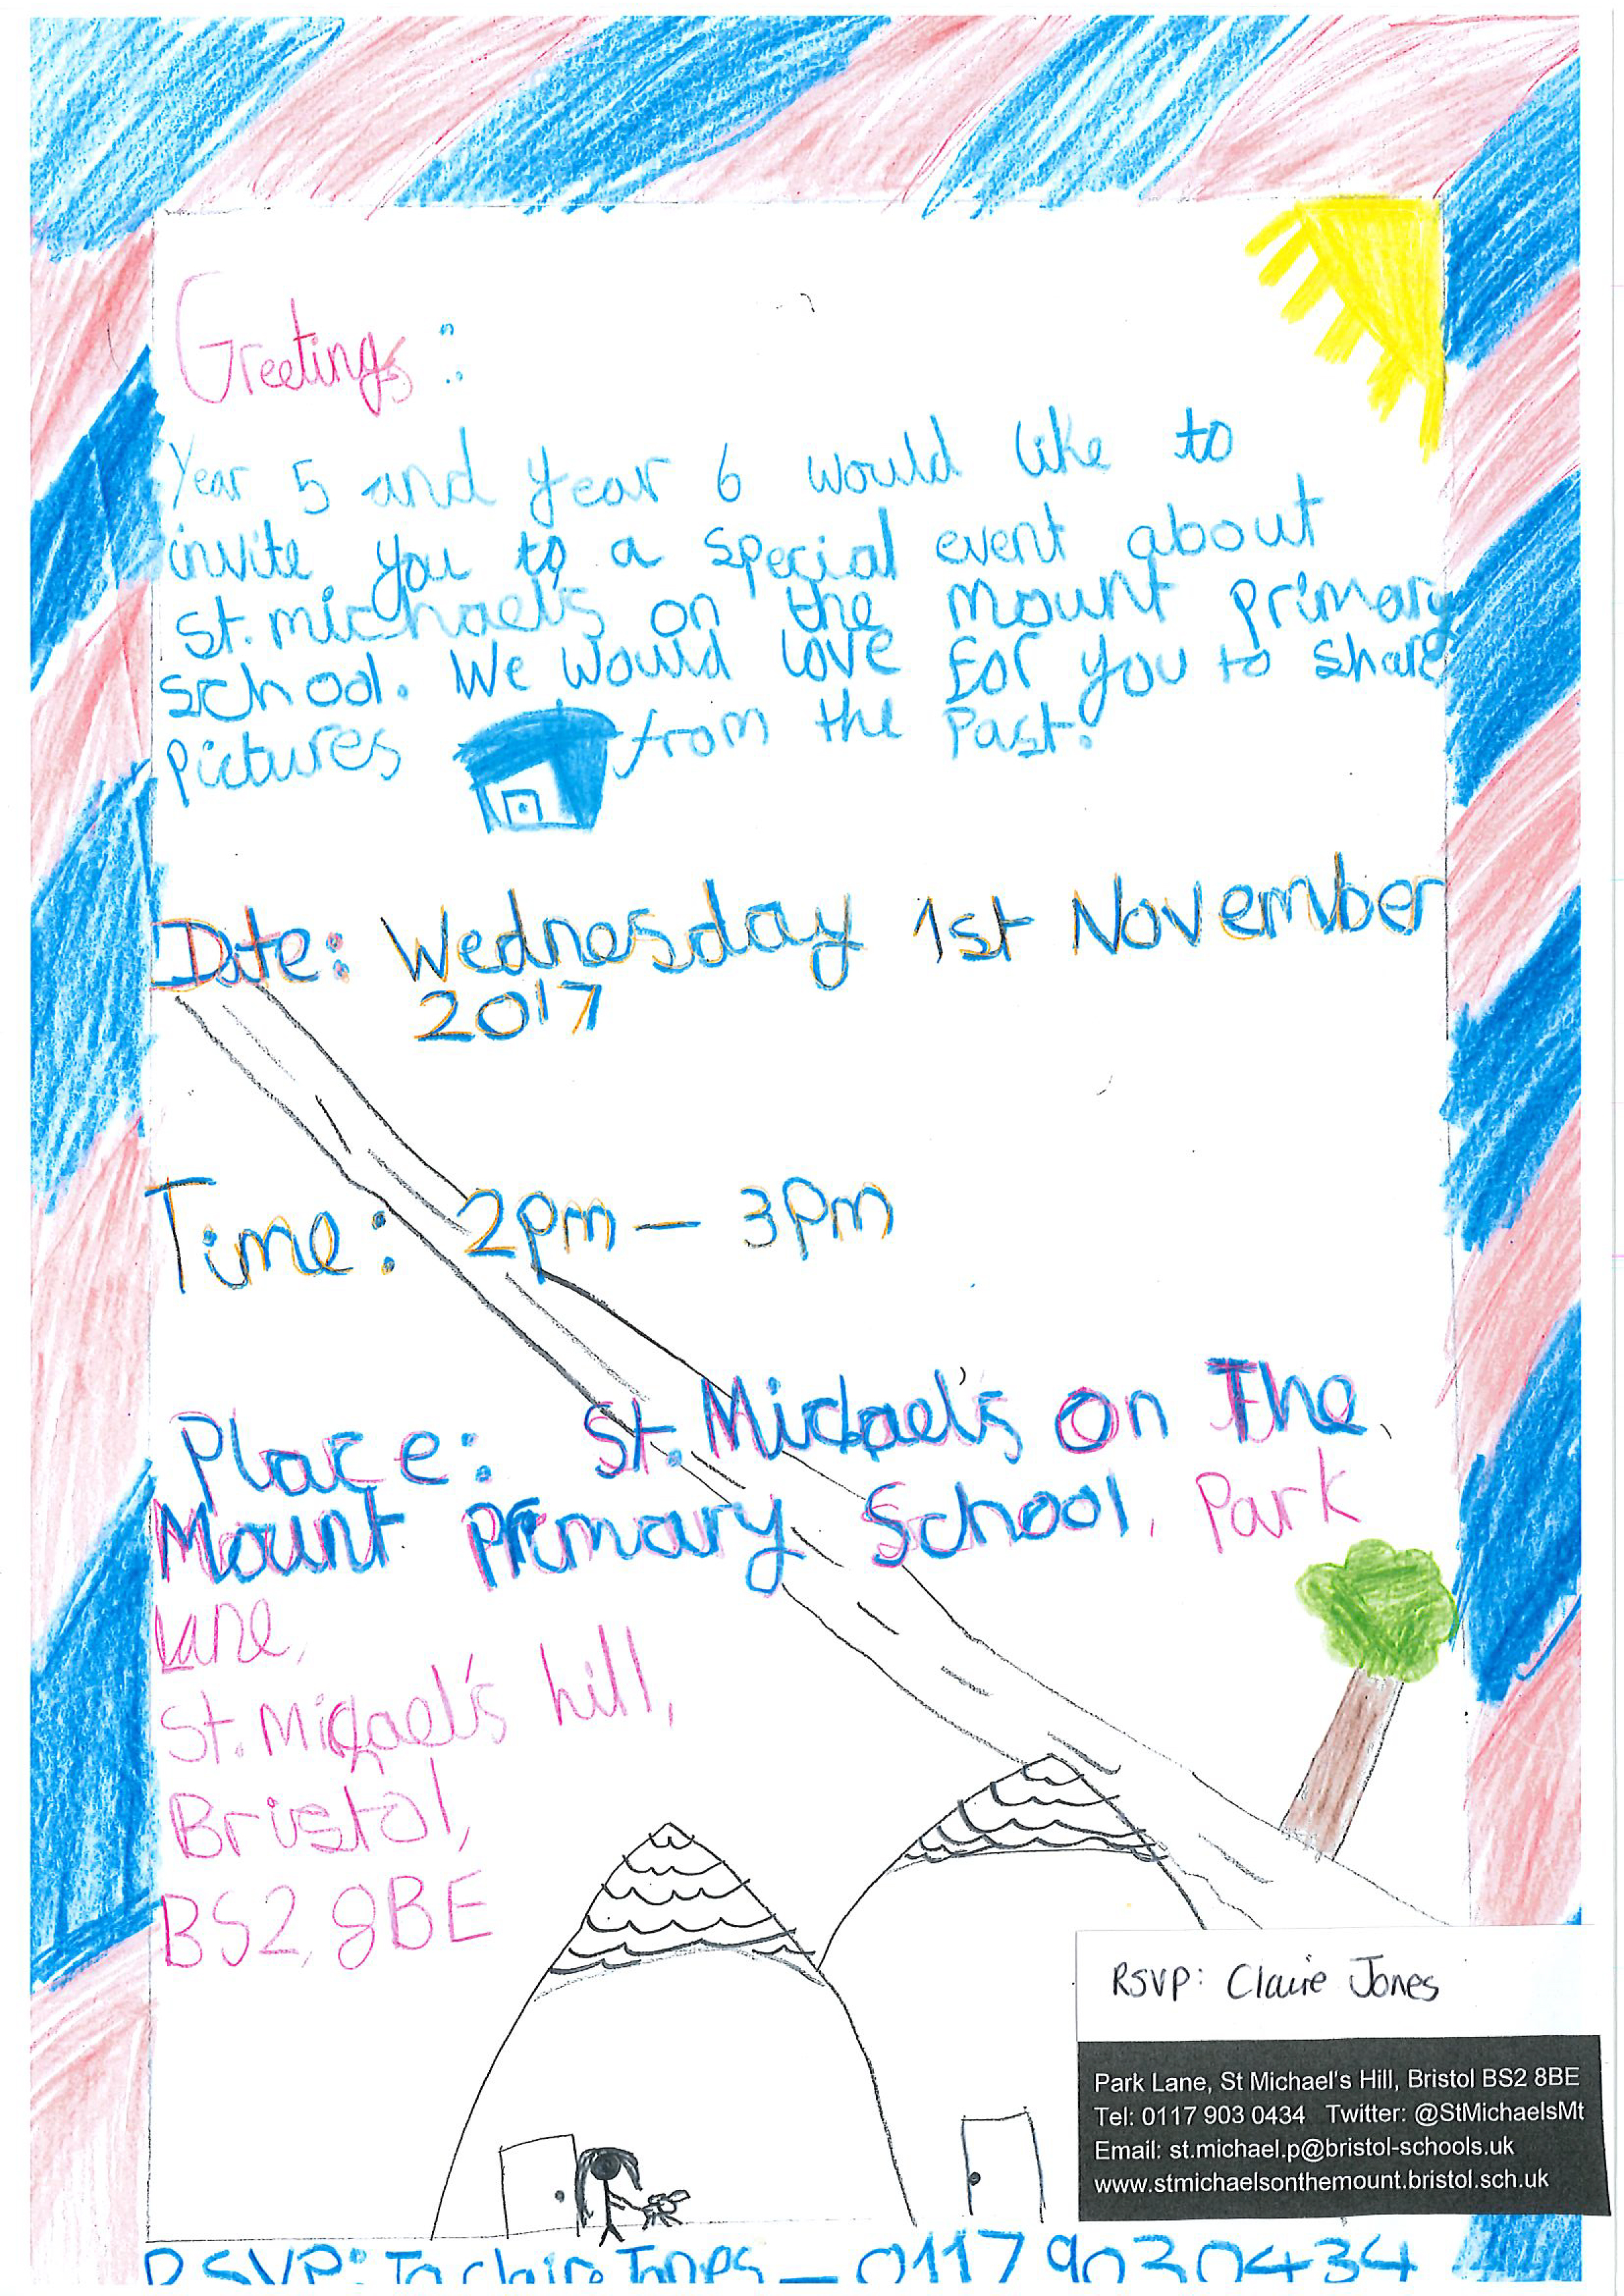 Greetings:
Year 5 and year 6 would like to
invite you to a special event about
St. michael's on the mount primary
school. We would love for you to share
pictures from the past.
Date: Wednesday 1st November
2017
Time: 2pm – 3pm
Place: St. Michael's on The
Mount Primary School, Park
Lane,
St. Michael's hill,
Bristol,
BS2, 8BE
RSVP: Claire Jones
Park Lane, St Michael's Hill, Bristol BS2 8BE
Tel: 0117 903 0434 Twitter: @StMichaelsMt
Email: st.michael.p@bristol-schools.uk
www.stmichaelsonthemount.bristol.sch.uk
RSVP: To claire Jones – 0117 9030434